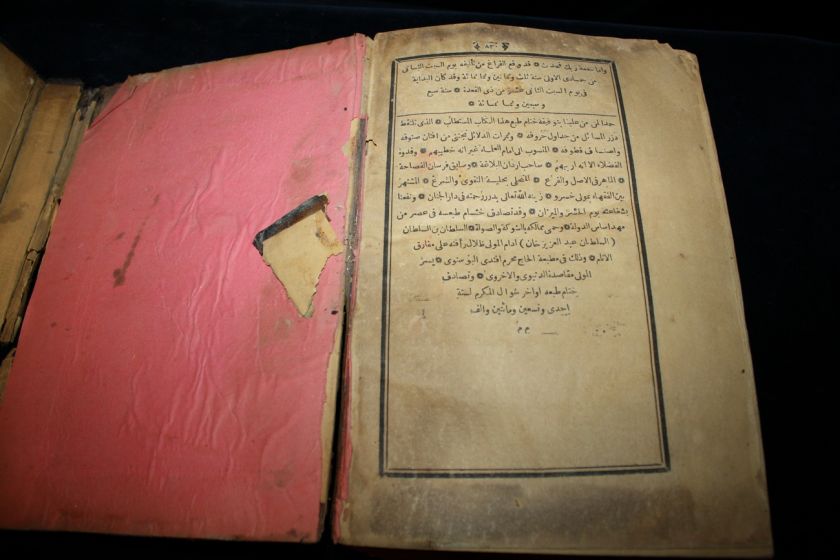 ٨٣٠
وانا سمعة ربك فحدث ۞ قد وقع الفراغ من تأليفه يوم السبت الثانى
من جمادى الاولى سنة ثلث وثمانين وثما نمائة وقد كان البداية
فى يوم السبت الثانى عشر من ذى القعدة ۞ سنة سبع
وسبعين وثما نمائة ۞
حمدا لمن من علينا بتوفيقه ختام طبع هذا الكتاب المستطاب ۞ الذى تلتقط
درر المسائل من جداول حروفه ۞ وثمرات الدلائل تجتنى من افنان صنوفه
واغصان قطوفه ۞ المنسوب الى امام العلماء غير انه خطيبهم ۞ وقدوة
الفضلاء الا انه اريبهم ۞ صاحب اردان البلاغة ۞ وسابق فرسان الفصاحة
۞ الماهر فى الاصل والفرع ۞ المتحلى بحلية التقوى والشرع ۞ المشتهر
بين الفقهاء بمولى خسرو ۞ زينه الله تعالى بدرر رحمته فى دار الجنان ۞ ونفعنا
بشفاعته يوم الحشر والميزان ۞ وقد تصادف ختام طبعه فى عصر من
مهد اساس الدولة ۞ وحمى ممالكه بالشوكة والصولة ۞ السلطان بن السلطان
( السلطان عبد العزيز خان ) ادام المولى ظلال رأفته على مفارق
الانام ۞ وذلك فى مطبعة الحاج محرم افندى البوسنوى ۞ يسر
المولى مقاصده الدنيوى والاخروى ۞ وتصادف
ختام طبعه اواخر شوال المكرم لسنة
احدى وتسعين ومائتين والف
م م